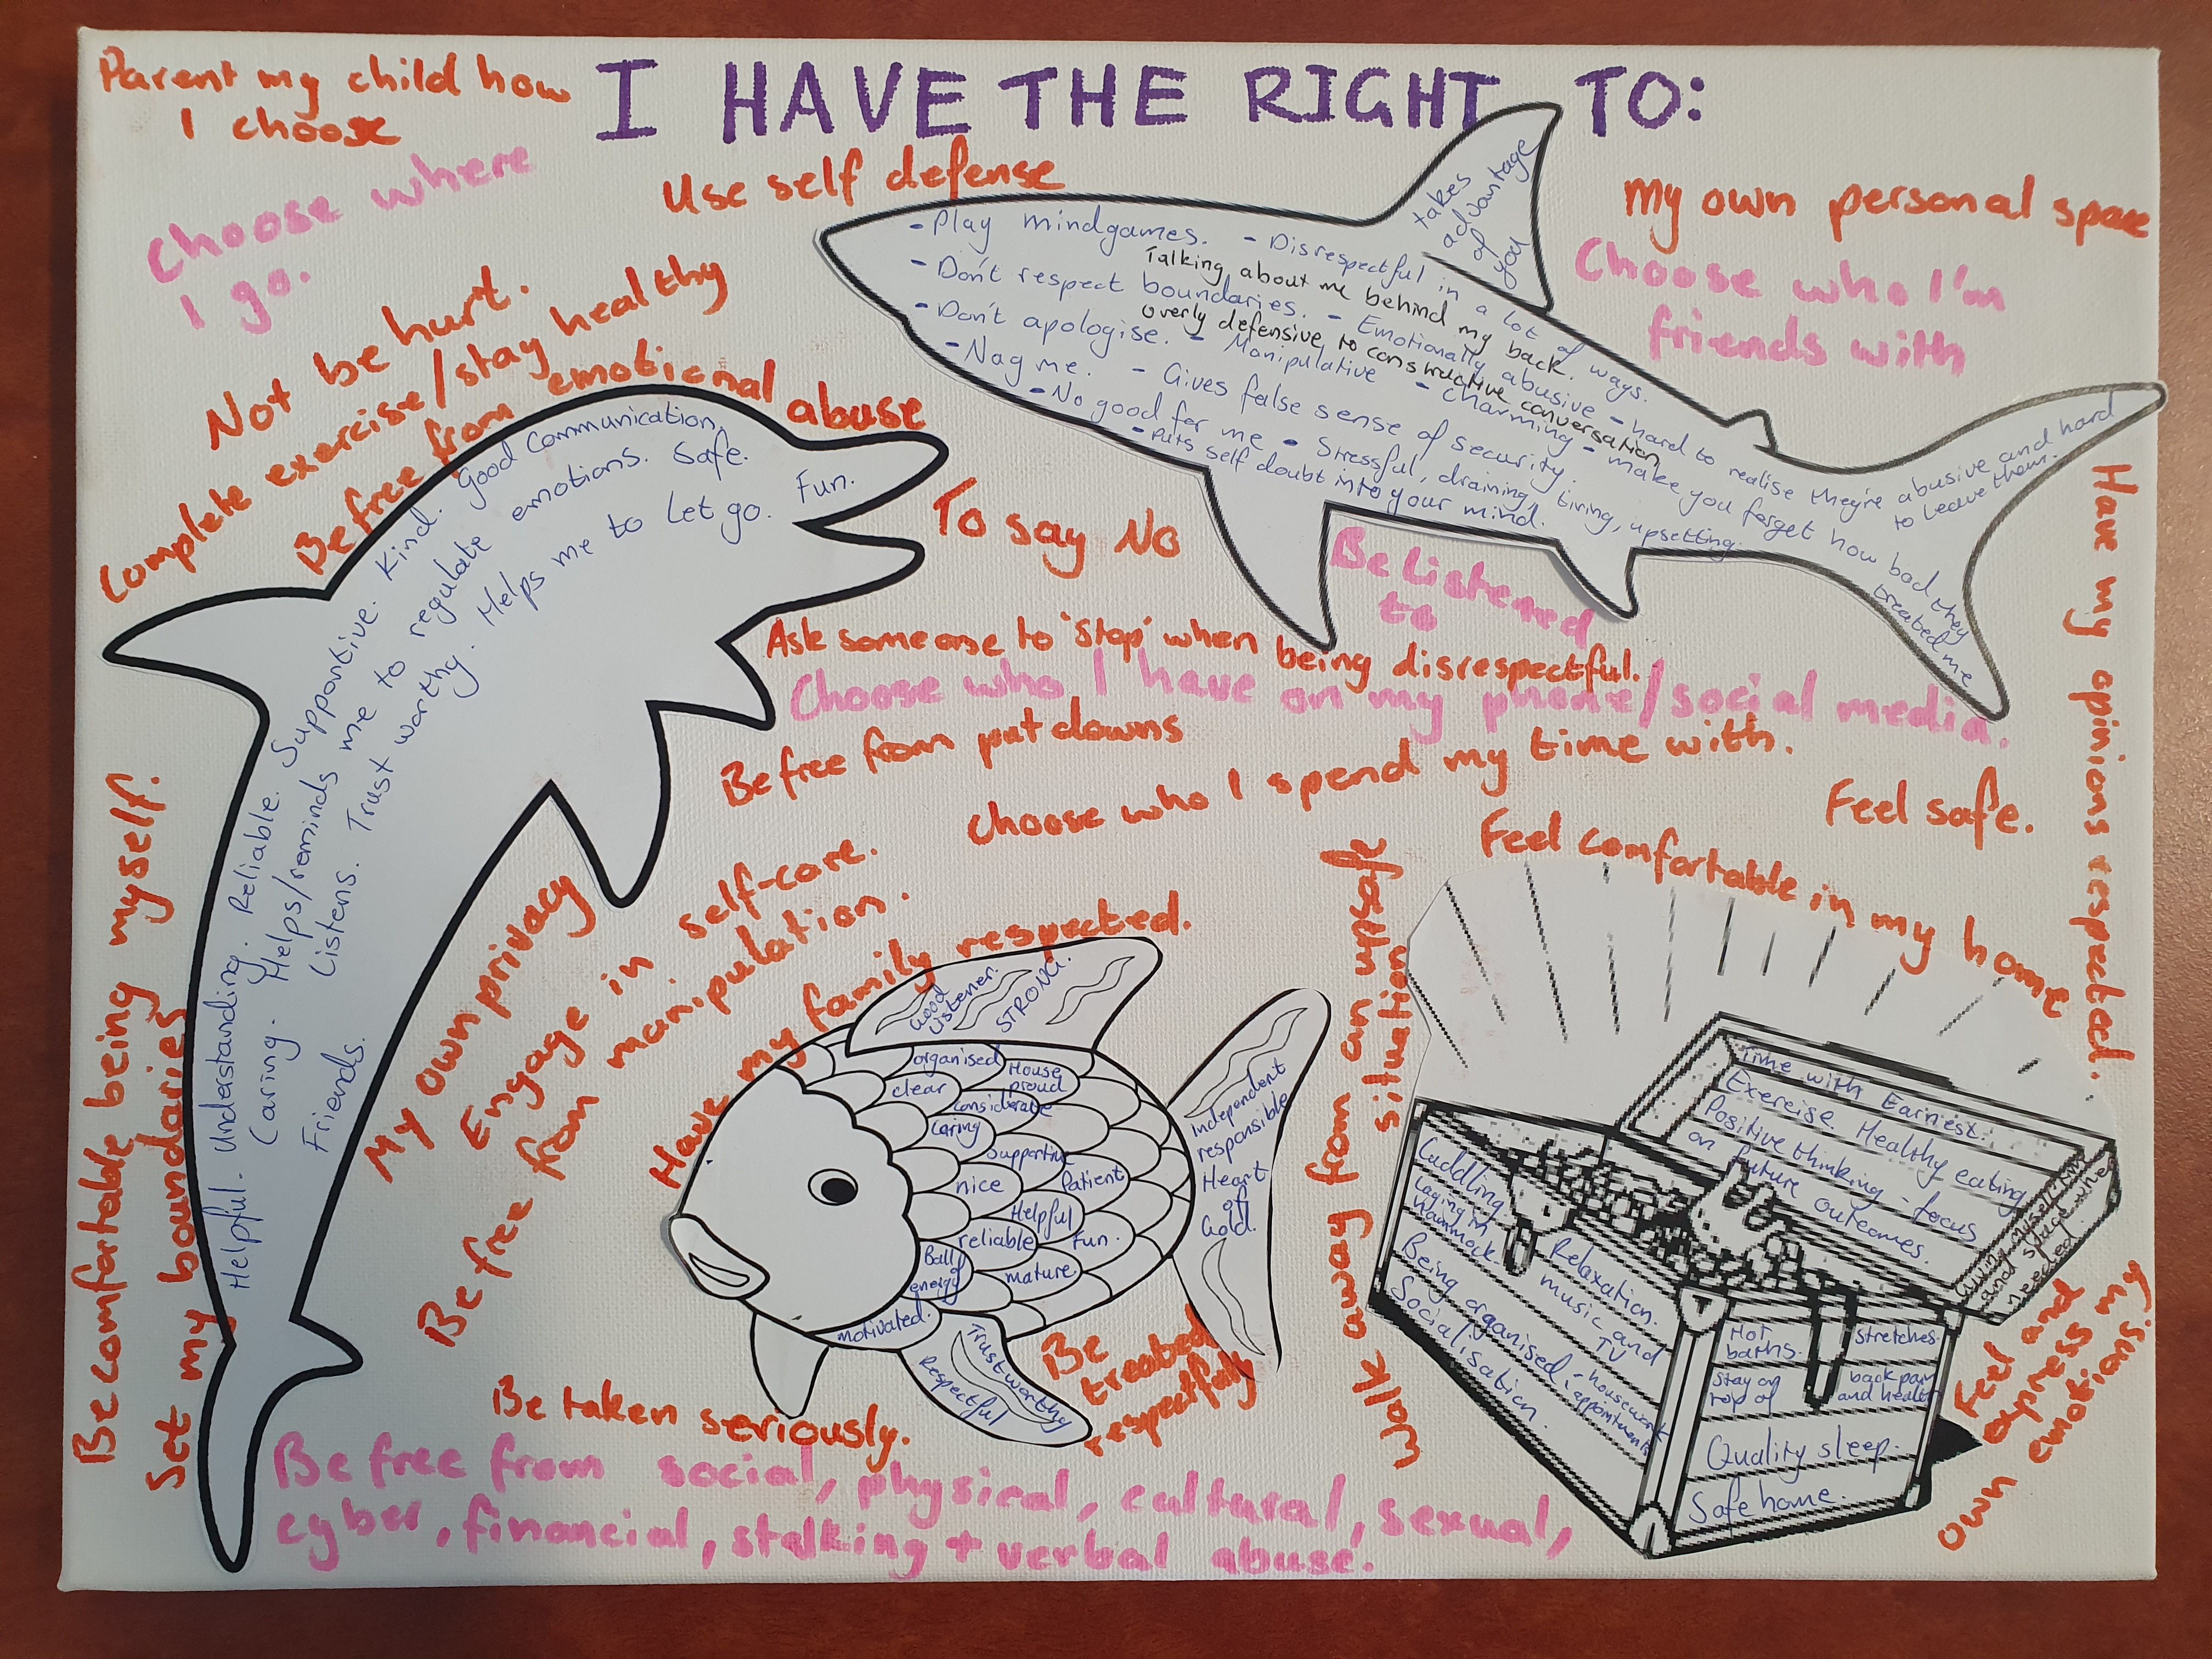 I HAVE THE RIGHT TO:
Parent my child how
I choose
Choose where
I go.
Use self defense
Not be hurt.
Complete exercise/stay healthy
Be free from emotional abuse
My own personal space
Choose who I'm
friends with
To say No
Be Listened
to
Ask someone to 'stop' when being disrespectful.
Choose who I have on my phone/social media.
Be free from put downs
Choose who I spend my time with.
Have my opinions respected.
Feel safe.
Feel comfortable in my home
Be comfortable being myself.
Set my boundaries
My own privacy
Engage in self-care.
Be free from manipulation.
Have my family respected.
Walk away from an unsafe
situation
Be
treated
respectfully
Feel and
express my
own emotions
Be taken seriously.
Be free from social, physical, cultural, sexual,
cyber, financial, stalking + verbal abuse.
takes
advantage
of
you
- Play mindgames. - Disrespectful in a lot of ways.
Talking about me behind my back.
- Don't respect boundaries. - Emotionally abusive - hard to realise they're abusive and hard
to leave them.
overly defensive to constructive conversation
- Don't apologise. - Manipulative - Charming - make you forget how bad they
treated me
- Nag me. - Gives false sense of security.
- No good for me - Stressful, draining, tiring, upsetting.
- Puts self doubt into your mind.
Helpful. Understanding. Reliable. Supportive. Kind. Good Communication.
Caring. Helps/reminds me to regulate emotions. Safe.
Friends. Listens. Trust worthy. Helps me to let go. Fun.
Good
Listener.
STRONG.
organised
House
proud
clear
considerate
caring
Supportive
nice
Patient
Helpful
reliable
Fun.
Ball
of
energy
mature
motivated.
Trustworthy
Respectful
Independent
responsible
Heart
of
Gold.
Time with Earniest.
Exercise. Healthy eating
Positive thinking - focus
on future outcomes.
Giving myself time
and space when
needed.
Cuddling.
Laying in
Hammock.
Relaxation.
music and
TV
Being organised - housework
, appointments
Socialisation.
Hot
baths.
Stretches.
Stay on
top of
back pain
and health
Quality sleep.
Safe home.